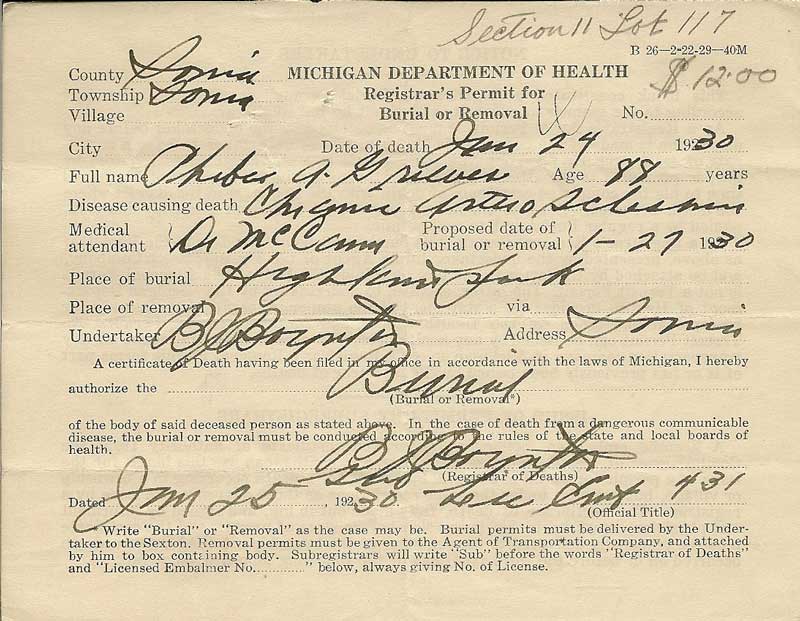 Section 11 Lot 117
B 26—2-22-29—40M
County Ionia MICHIGAN DEPARTMENT OF HEALTH $12.00
Township Ionia Registrar's Permit for
Village Burial or Removal No.
City Date of death Jan 24 1930
Full name A. Age 88 years
Disease causing death Chronic Arterio Sclerosis
Medical attendant Dr McCann Proposed date of burial or removal 1-27 1930
Place of burial Highland Park
Place of removal via
Undertaker B Boynton Address Ionia
A certificate of Death having been filed in my office in accordance with the laws of Michigan, I hereby
authorize the Burial
(Burial or Removal*)
of the body of said deceased person as stated above. In the case of death from a dangerous communicable
disease, the burial or removal must be conducted according to the rules of the state and local boards of
health. B Boynton
Sub (Registrar of Deaths)
Dated Jan 25, 192 30. Lic Emb 431
(Official Title)
Write "Burial" or "Removal" as the case may be. Burial permits must be delivered by the Under-
taker to the Sexton. Removal permits must be given to the Agent of Transportation Company, and attached
by him to box containing body. Subregistrars will write "Sub" before the words "Registrar of Deaths"
and "Licensed Embalmer No............" below, always giving No. of License.